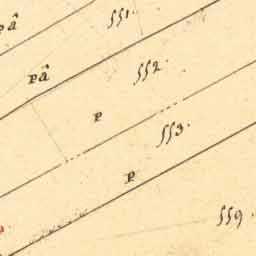 551.
pâ
552.
pâ
p
553.
p
559.